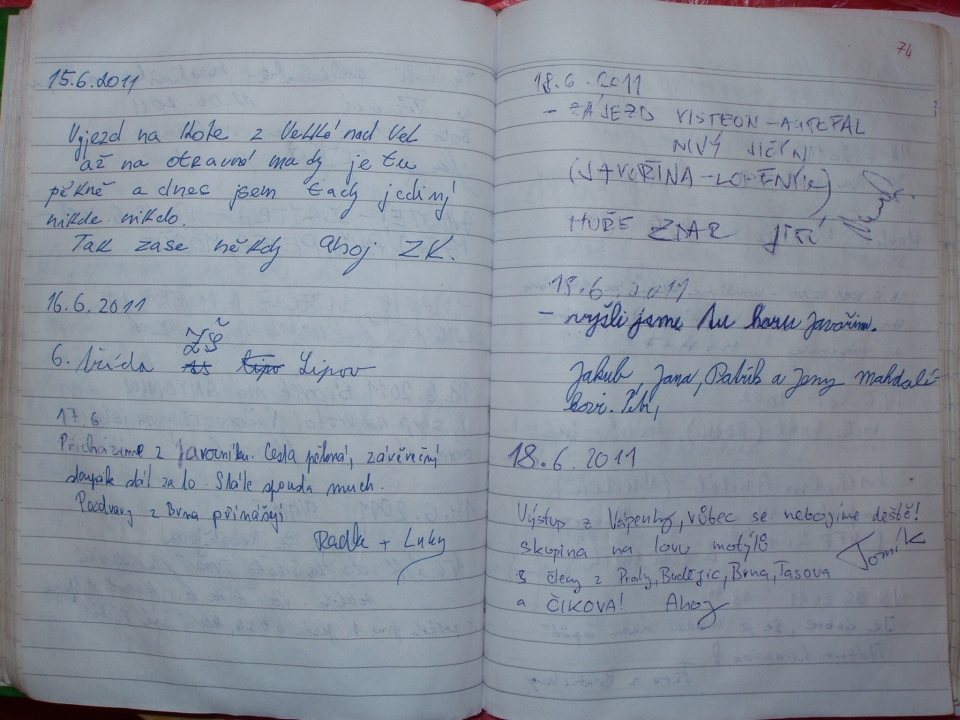 15.6.2011
Vyjezd na kole z Velké nad Vel
až na otravné mady je tu
pěkně a dnes jsem tady jediný
nikde nikdo.
Tak zase někdy ahoj ZK.
16.6.2011
ZŠ
6. třída Lipov
17.6
Přicházíme z Javorníku. Cesta pěkná, závěrečný
stoupák stál za to. Stále spousta much.
Pozdravy z Brna přinášejí
Radka + Luky
74
18.6.2011
- ZÁJEZD VISTEON-AUTOPAL
NOVÝ JIČÍN
(JAVOŘINA-LOPENÍK)
HOŘE ZDAR JIŘÍ
18.6.2011
- vyšli jsme tu horu Javořinu.
Jakub, Jana, Patrik a Jeny
18.6.2011
Výstup z Vápenky, vůbec se nebojíme deště!
skupina na lovu motýlů
s členy z Prahy, Budějic, Brna, Tasova
a ČIKOVA! Ahoj
Tomík